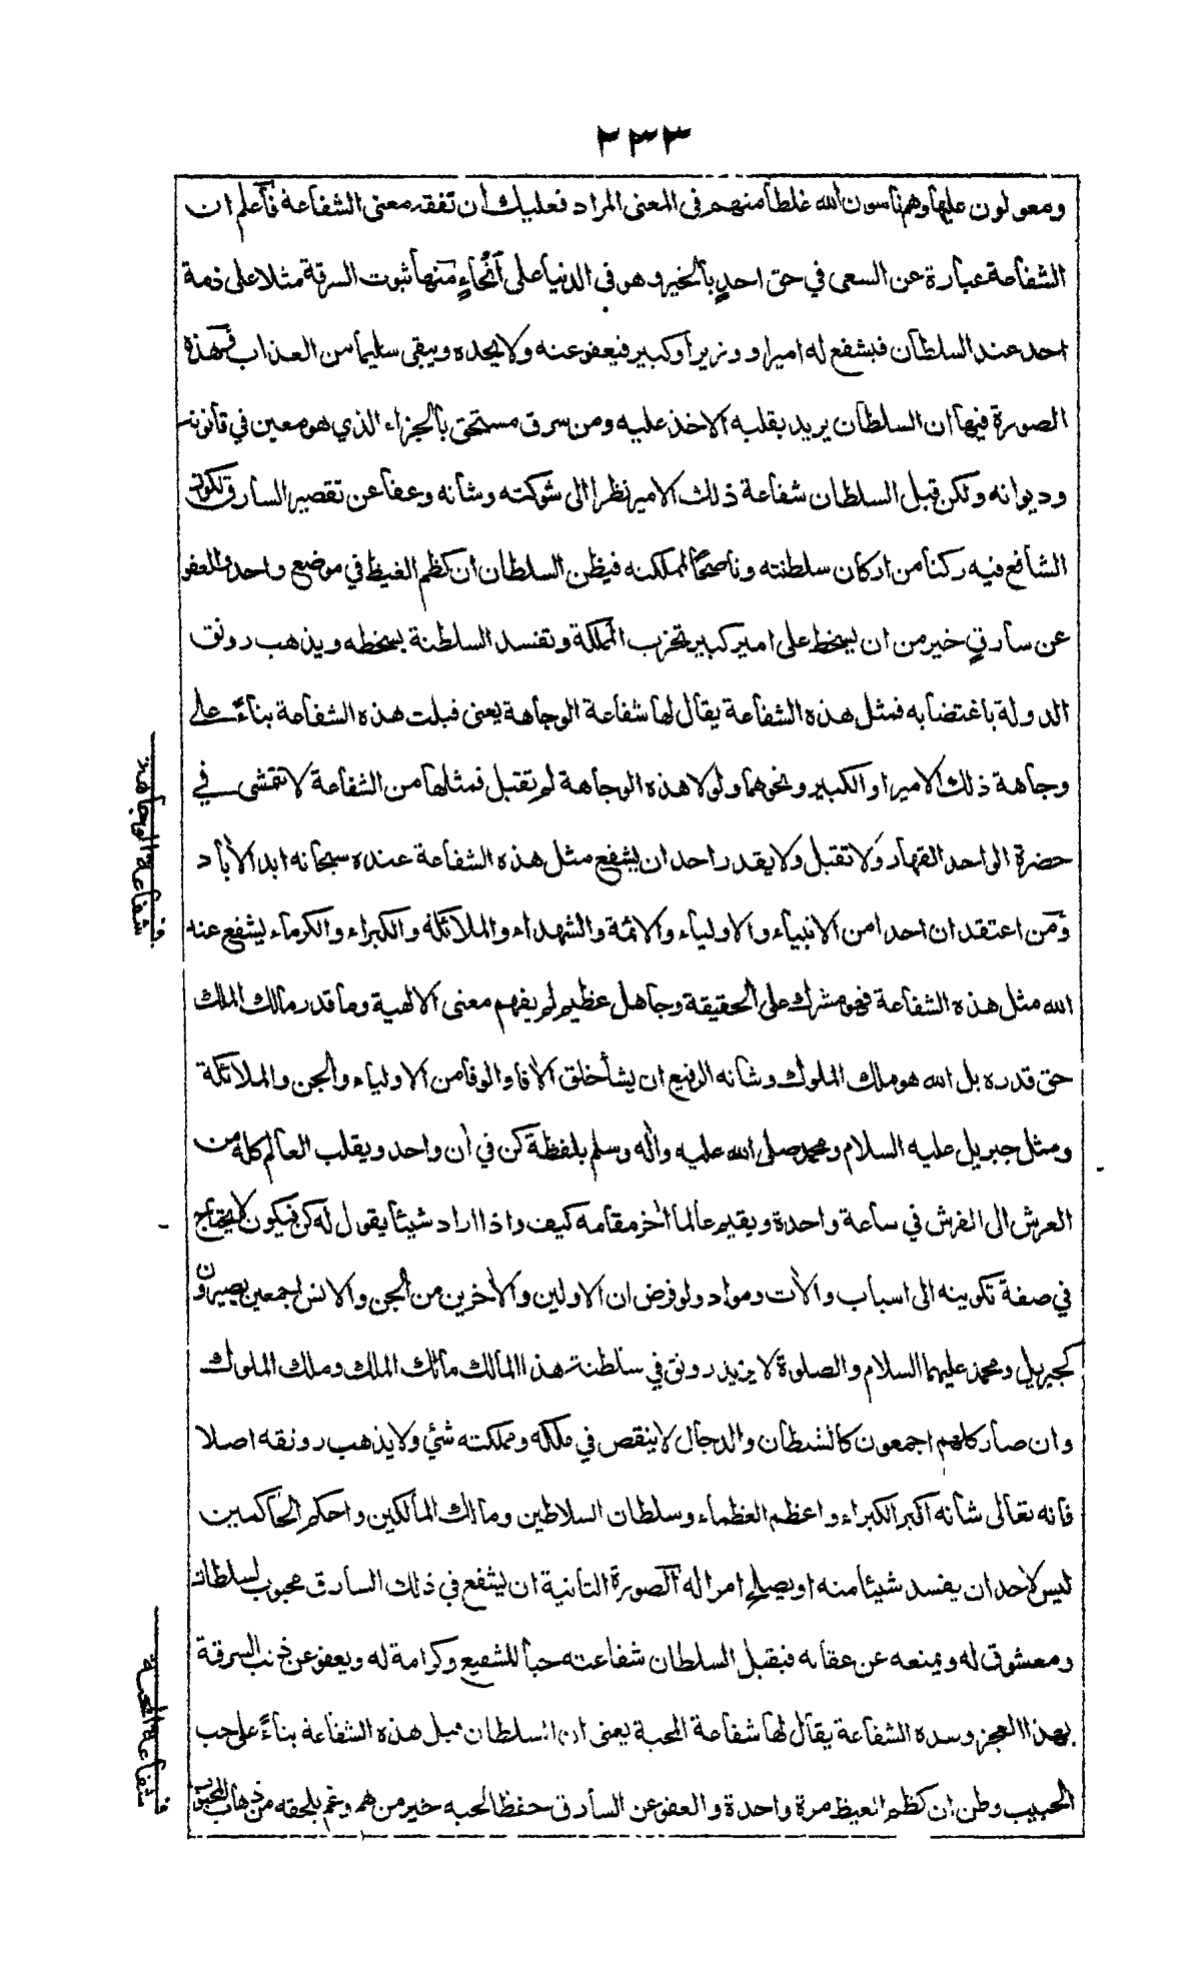 ٢٣٣
ومعولون عليها وهم ناسون الله غلطا منهم في المعنى المراد فعليك ان تفقه معنى الشفاعة فاعلم ان
الشفاعة عبارة عن السعى في حق احدٍ بالخير وهو في الدنيا على أنحاءٍ منها ثبوت السرقة مثلا على ذمة
احد عند السلطان فيشفع له امير او وزير او كبير فيعفو عنه ولا يحده ويبقى سليما من العذاب فهذه
الصورة فيها ان السلطان يريد بقلبه الاخذ عليه ومن سرق مستحق بالجزاء الذي هو معين في قانونه
وديوانه ولكن قبل السلطان شفاعة ذلك الامير نظرا الى شوكته وشانه وعفا عن تقصير السارق لكون
الشافع فيه ركنا من اركان سلطنته وناصحًا لملكته فيظن السلطان ان كظم الغيظ في موضع واحد والعفو
عن سارقٍ خير من ان يسخط على امير كبير تخرب المملكة وتفسد السلطنة بسخطه ويذهب رونق
الدولة باغتضابه فمثل هذه الشفاعة يقال لها شفاعة الوجاهة يعنى قبلت هذه الشفاعة بناءً على
وجاهة ذلك الامير او الكبير ونحوهما ولولا هذه الوجاهة لم تقبل فمثلها من الشفاعة لا تتمشى في
حضرة الواحد القهار ولا تقبل ولا يقدر احد ان يشفع مثل هذه الشفاعة عنده سبحانه ابد الآباد
ومن اعتقد ان احدا من الانبياء والاولياء والائمة والشهداء والملائكة والكبراء والكرماء يشفع عنه
الله مثل هذه الشفاعة فهو مشرك على الحقيقة وجاهل عظيم لم يفهم معنى الالهية وما قدر مالك الملك
حق قدره بل الله هو ملك الملوك وشانه الرفيع ان يشأ خلق الافا والوفا من الاولياء والجن والملائكة
ومثل جبريل عليه السلام ومحمد صلى الله عليه وآله وسلم بلفظة كن في آن واحد ويقلب العالم كله من
العرش الى الفرش في ساعة واحدة ويقيم عالما آخر مقامه كيف واذا اراد شيئا يقول له كن فيكون لا يحتاج
في صفة تكوينه الى اسباب والآت ومواد ولو فرض ان الاولين والآخرين من الجن والانس اجمعين يصيرون
كجبريل ومحمد عليهما السلام والصلوة لا يزيد رونق في سلطنة هذا المالك مالك الملك وملك الملوك
وان صار كلهم اجمعون كالشيطان والدجال لا ينقص في ملكه ومملكته شيء ولا يذهب رونقه اصلا
فانه تعالى شانه اكبر الكبراء واعظم العظماء وسلطان السلاطين ومالك المالكين واحكم الحاكمين
ليس لاحد ان يفسد شيئا منه او يصلح امرا له الصورة الثانية ان يشفع في ذلك السارق محبوب لسلطان
ومعشوق له ويمنعه عن عقابه فيقبل السلطان شفاعته حبا للشفيع وكرامة له ويعفو عن ذنب السرقة
بهذا العجز وهذه الشفاعة يقال لها شفاعة المحبة يعنى ان السلطان قبل هذه الشفاعة بناءً على حب
الحبيب وظن ان كظم الغيظ مرة واحدة والعفو عن السارق حفظا لحبه خير من هم وغم يلحقه من ذهاب المحبوب
ف شفاعة الوجاهة
ف شفاعة المحبة